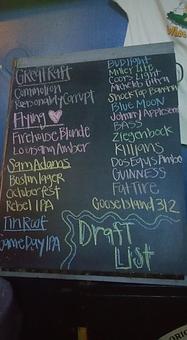 Great Raft
Commotion
Reasonably Corrupt
Flying
Firehouse Blonde
Louisiana Amber
Sam Adams
Boston Lager
Octoberfest
Rebel IPA
Tin Roof
Game Day IPA
Bud Light
Miller Lite
Coors Light
Michelob Ultra
Shock Top
Blue Moon
Johnny Appleseed
BASS
Ziegenbock
Killians
Dos Equis Ambar
GUINNESS
Fat Tire
Goose Island 312
Draft
List